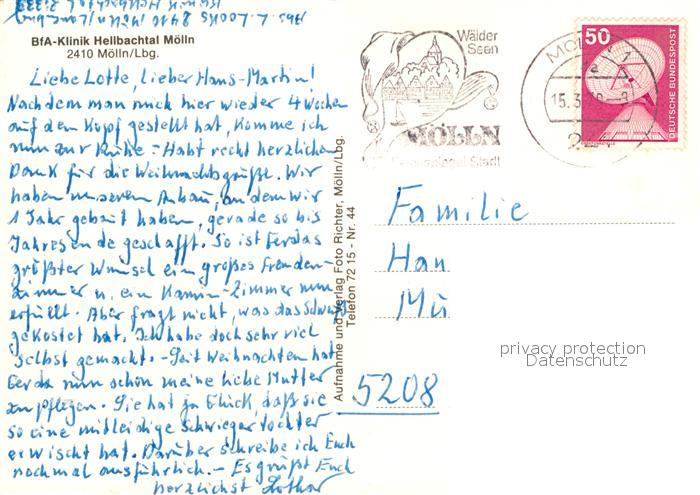 2410 Mölln/Lbg.
BfA-Klinik Hellbachtal Mölln
2410 Mölln/Lbg.
Liebe Lotte, lieber Hans-Martin!
Nachdem man mich hier wieder 4 Wochen
auf den Kopf gestellt hat, komme ich
nun zur Ruhe. - Habt recht herzlichen
Dank für die Weihnachtsgrüße. Wir
haben unseren Anbau, an dem wir
1 Jahr gebaut haben, gerade so bis
Jahresende geschafft. So ist Gerdas
größter Wunsch ein großes Fremden-
zimmer u. ein Kamin-Zimmer nun
erfüllt. Aber fragt nicht, was das
gekostet hat. Ich habe doch sehr viel
selbst gemacht. - Seit Weihnachten hat
Gerda nun schon meine liebe Mutter
zu pflegen. Sie hat ja Glück, daß sie
so eine mitleidige Schwiegertochter
erwischt hat. Darüber schreibe ich Euch
nochmal ausführlich. - Es grüßt Euch
herzlichst Lothar
Aufnahme und Verlag Foto Richter, Mölln/Lbg.
Telefon 72 15 - Nr. 44
Wälder
Seen
MÖLLN
50
DEUTSCHE BUNDESPOST
Familie
Han
Mü
5208
privacy protection
Datenschutz